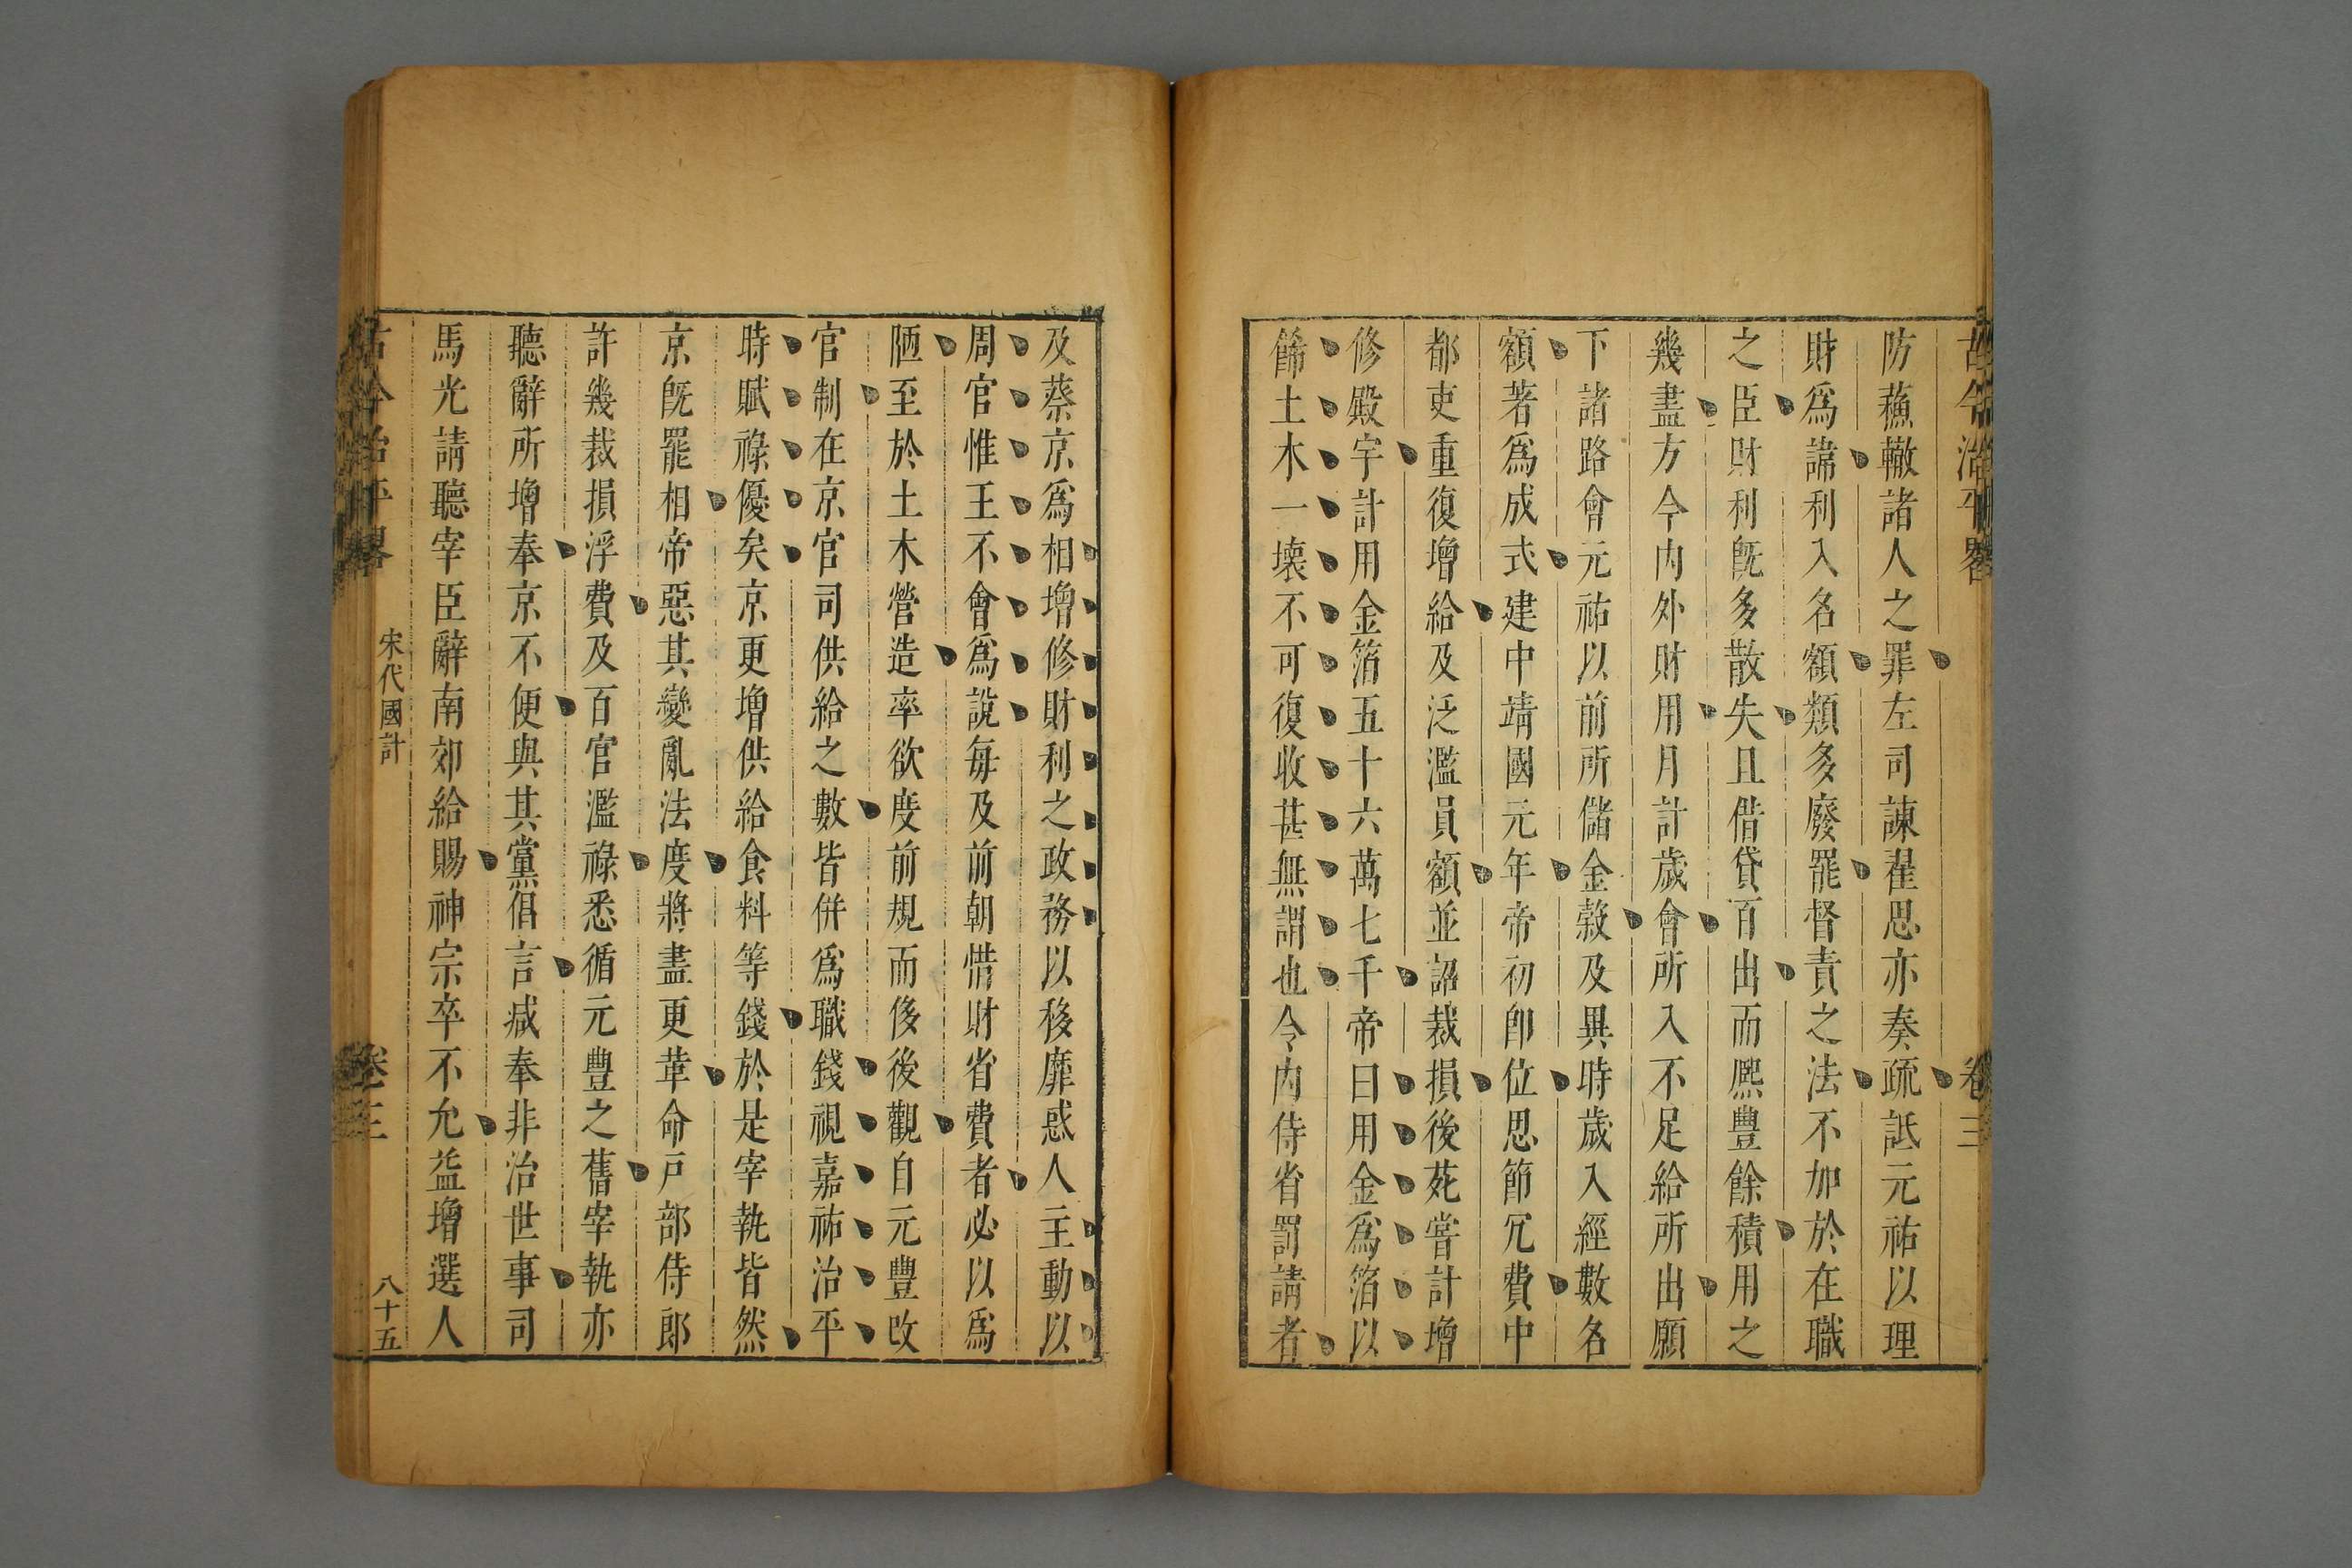 古今治平畧 卷三
防蘓轍諸人之罪左司諫翟思亦奏疏詆元祐以理
財爲諱利入名額類多廢罷督責之法不加於在職
之臣財利旣多散失且借貸百出而熈豐餘積用之
幾盡方今内外財用月計歲會所入不足給所出願
下諸路會元祐以前所儲金糓及異時歲入經數名
額著爲成式建中靖國元年帝初卽位思節冗費中
都吏重復增給及泛濫員額並詔裁損後苑嘗計增
修殿宇計用金箔五十六萬七千帝曰用金爲箔以
餙土木一壊不可復收甚無謂也令内侍省罰請者
及蔡京爲相增修財利之政務以移靡惑人主動以
周官惟王不會爲說每及前朝惜財省費者必以爲
陋至於土木營造率欲度前規而侈後觀自元豐改
官制在京官司供給之數皆併爲職錢視嘉祐治平
時賦祿優矣京更增供給食料等錢於是宰執皆然
京旣罷相帝惡其變亂法度將盡更革命戸部侍郎
許幾裁損浮費及百官濫祿悉循元豐之舊宰執亦
聽辭所增奉京不便與其黨倡言减奉非治世事司
馬光請聽宰臣辭南郊給賜神宗卒不允益增選人
古今治平畧 宋代國計 卷三 八十五